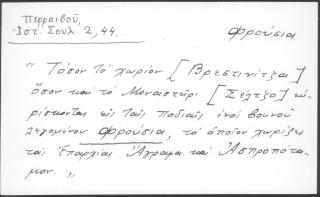 Περραιβοῦ, φρούσια
Ἱστ. Σουλ. 2, 44.
" Τόσον τό χωρίον [Βρεστινίτζα]
ὅσον καί τό Μοναστῆρι [Σέλτζο] εὑ-
ρίσκονται εἰς ταῖς ποδιαῖς ἑνός βουνοῦ
λεγομένου Φρούσια, τό ὁποῖον χωρίζει
ταῖς Ἐπαρχίαις Ἄγραφα καί Ἀσπροπότα-
μον. "